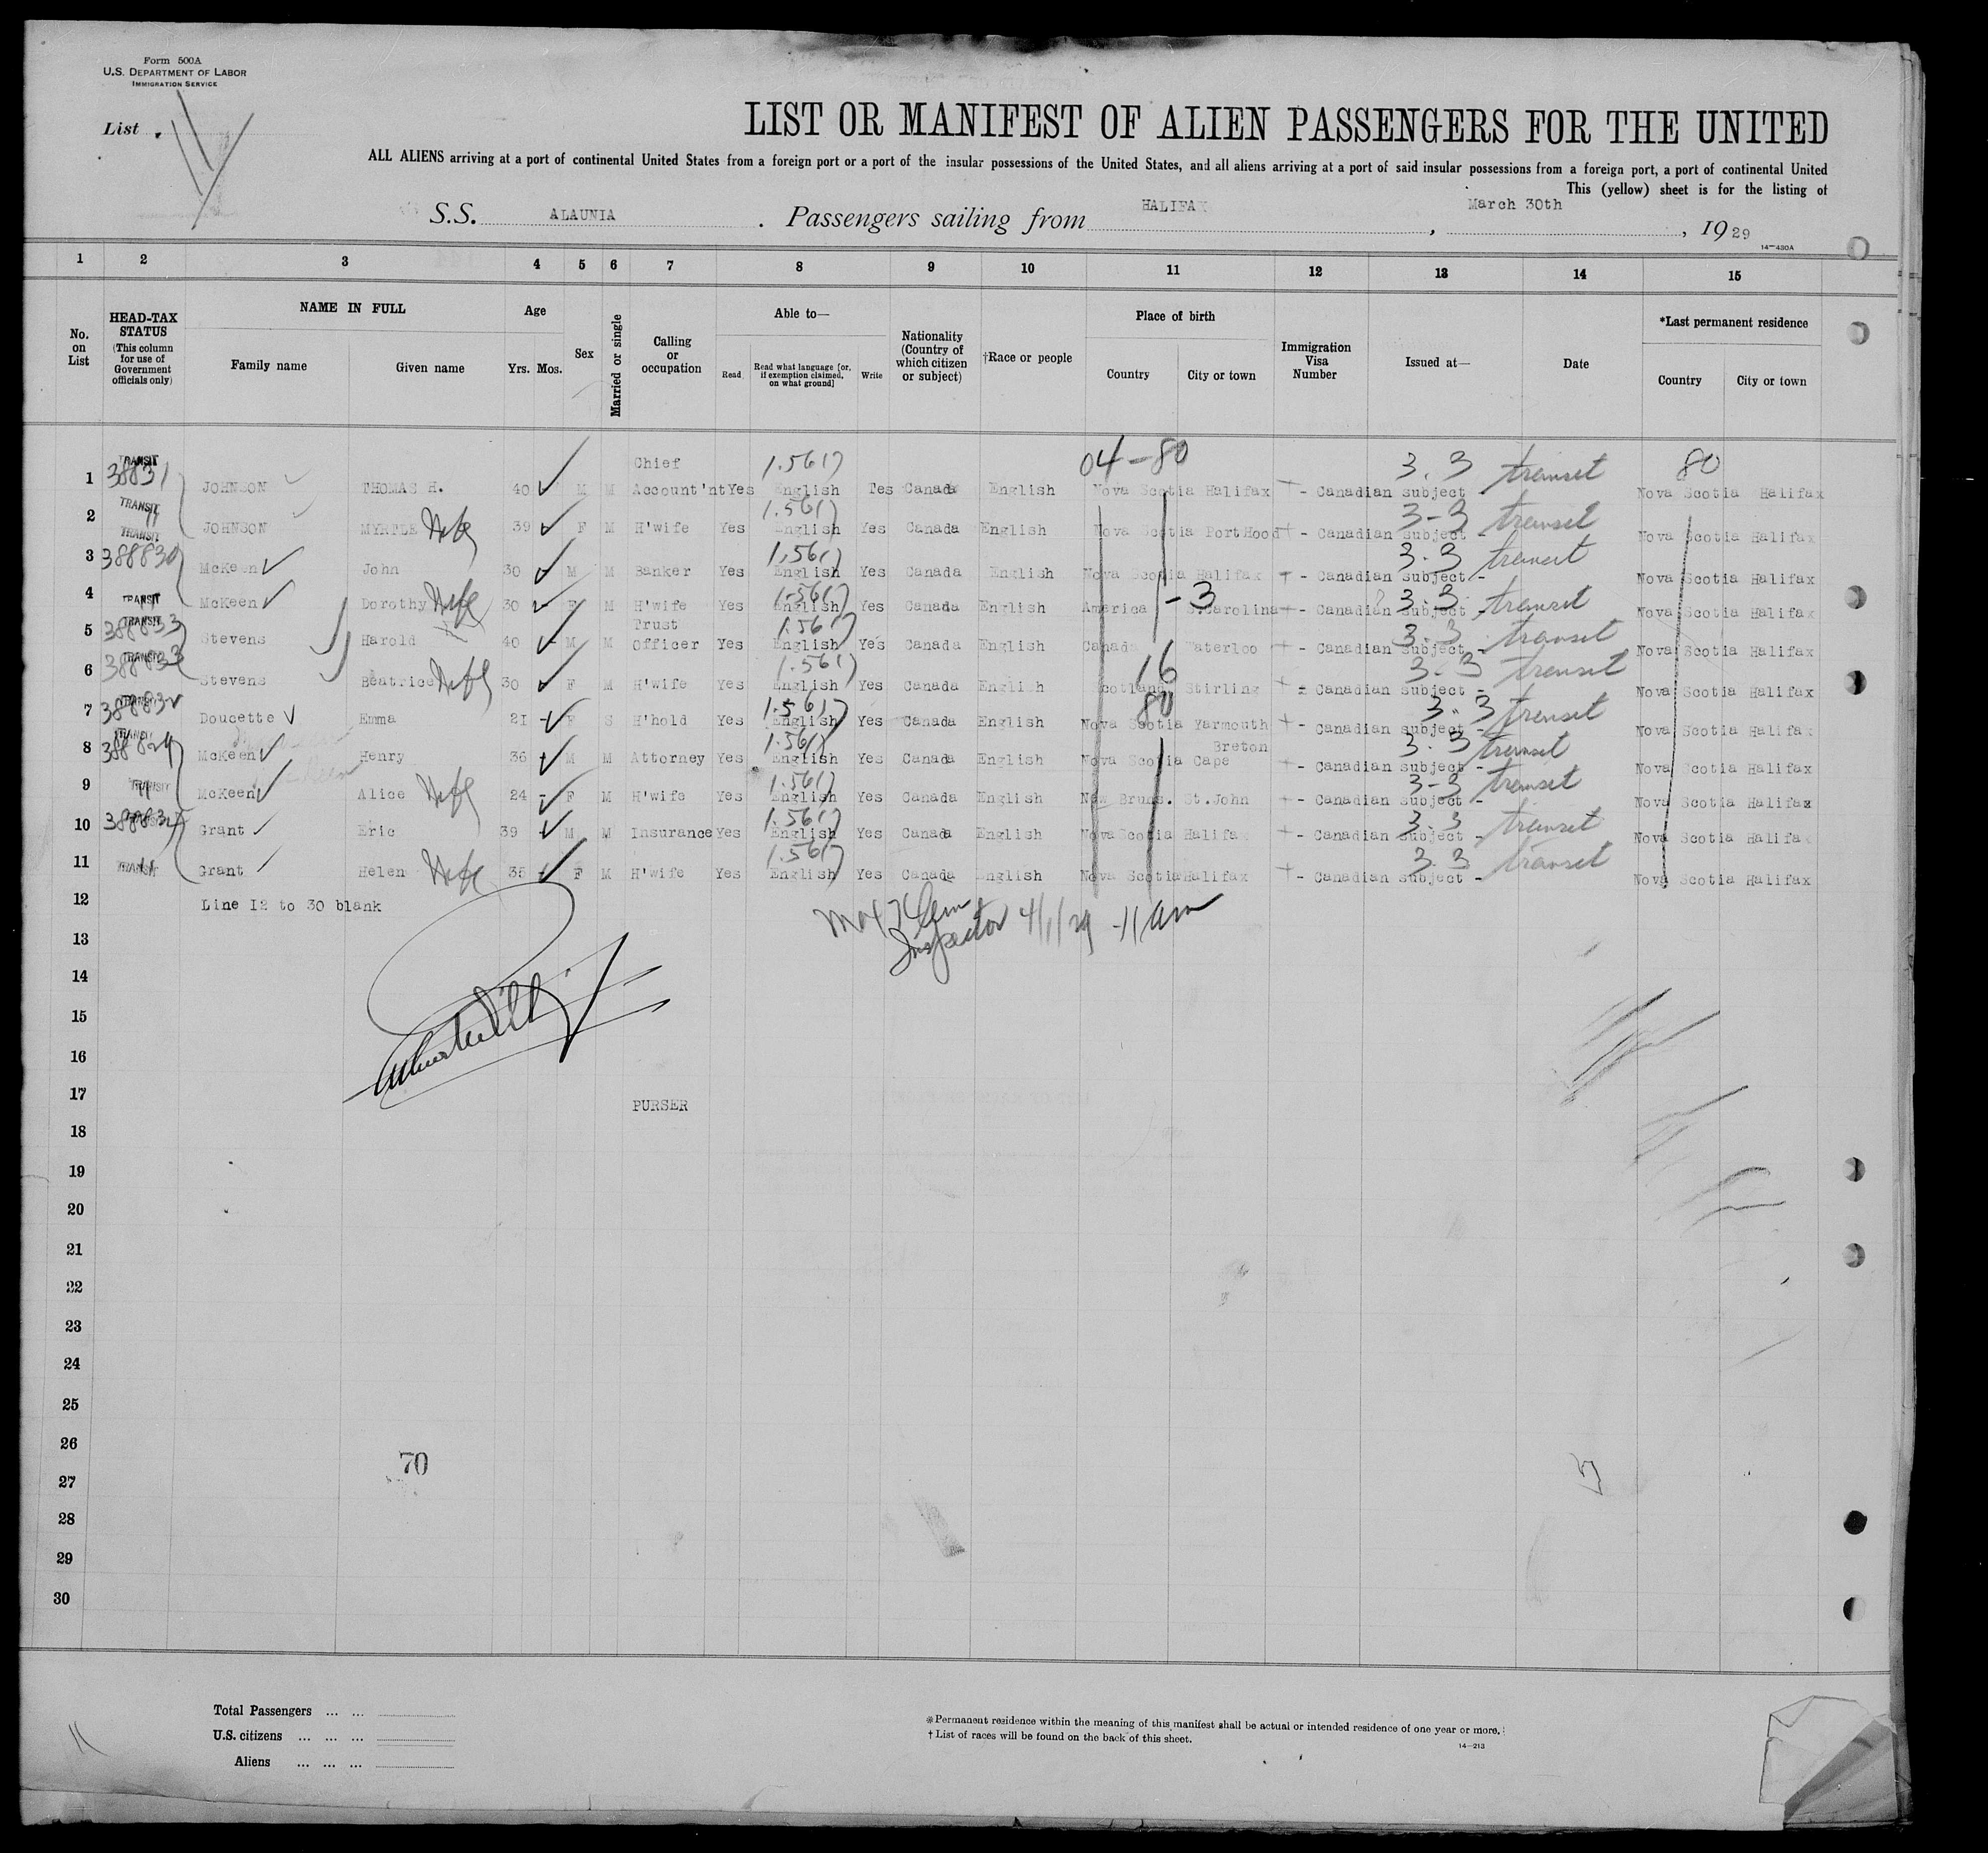 Form 500A
U.S. DEPARTMENT OF LABOR
IMMIGRATION SERVICE
List
LIST OR MANIFEST OF ALIEN PASSENGERS FOR THE UNITED
ALL ALIENS arriving at a port of continental United States from a foreign port or a port of the insular possessions of the United States, and all aliens arriving at a port of said insular possessions from a foreign port, a port of continental United
This (yellow) sheet is for the listing of
S.S. ALAUNIA . Passengers sailing from HALIFAX , March 30th , 1929
14-430A
1 2 3 4 5 6 7 8 9 10 11 12 13 14 15
No. on List
HEAD-TAX STATUS (This column for use of Government officials only)
NAME IN FULL
Family name Given name
Age
Yrs. Mos.
Sex
Married or single
Calling or occupation
Able to—
Read Read what language [or, if exemption claimed, on what ground] Write
Nationality (Country of which citizen or subject)
†Race or people
Place of birth
Country City or town
Immigration Visa Number
Issued at—
Date
*Last permanent residence
Country City or town
TRANSIT Chief 1.561) 04-80 3.3 transit 80
1 38831 JOHNSON THOMAS H. 40 M M Account'nt Yes English Yes Canada English Nova Scotia Halifax - Canadian subject - Nova Scotia Halifax
TRANSIT 1.561) 3-3 transit
2 " JOHNSON MYRTLE Wife 39 F M H'wife Yes English Yes Canada English Nova Scotia PortHood - Canadian subject - Nova Scotia Halifax
TRANSIT 1.561) 3.3 transit
3 388830 McKeen John 30 M M Banker Yes English Yes Canada English Nova Scotia Halifax - Canadian subject - Nova Scotia Halifax
TRANSIT 1.561) -3 3.3 transit
4 McKeen Dorothy Wife 30 F M H'wife Yes English Yes Canada English America S.Carolina - Canadian subject - Nova Scotia Halifax
TRANSIT Trust 1.561) 3.3 transit
5 388833 Stevens Harold 40 M M Officer Yes English Yes Canada English Canada Waterloo - Canadian subject - Nova Scotia Halifax
TRANSIT 1.561) 16 3-3 transit
6 388833 Stevens Beatrice Wife 30 F M H'wife Yes English Yes Canada English Scotland Stirling - Canadian subject - Nova Scotia Halifax
TRANSIT 1.561) 80 3.3 transit
7 388832 Doucette Emma 21 F S H'hold Yes English Yes Canada English Nova Scotia Yarmouth - Canadian subject - Nova Scotia Halifax
TRANSIT 1.561) Breton 3.3 transit
8 388829 McKeen Henry 36 M M Attorney Yes English Yes Canada English Nova Scotia Cape - Canadian subject - Nova Scotia Halifax
TRANSIT 1.561) 3-3 transit
9 " McKeen Alice Wife 24 F M H'wife Yes English Yes Canada English New Bruns. St.John - Canadian subject - Nova Scotia Halifax
1.561) 3.3 transit
10 388834 Grant Eric 39 M M Insurance Yes English Yes Canada English Nova Scotia Halifax - Canadian subject - Nova Scotia Halifax
1.561) 3.3 transit
11 TRANSIT Grant Helen Wife 35 F M H'wife Yes English Yes Canada English Nova Scotia Halifax - Canadian subject - Nova Scotia Halifax
12 Line I2 to 30 blank
Inspector 4/1/29 - 11 am
13
14
15
16
17 PURSER
18
19
20
21
22
23
24
25
26
70
27
28
29
30
Total Passengers ... ...
U.S. citizens ... ... ...
Aliens ... ... ...
*Permanent residence within the meaning of this manifest shall be actual or intended residence of one year or more.
† List of races will be found on the back of this sheet.
14-213